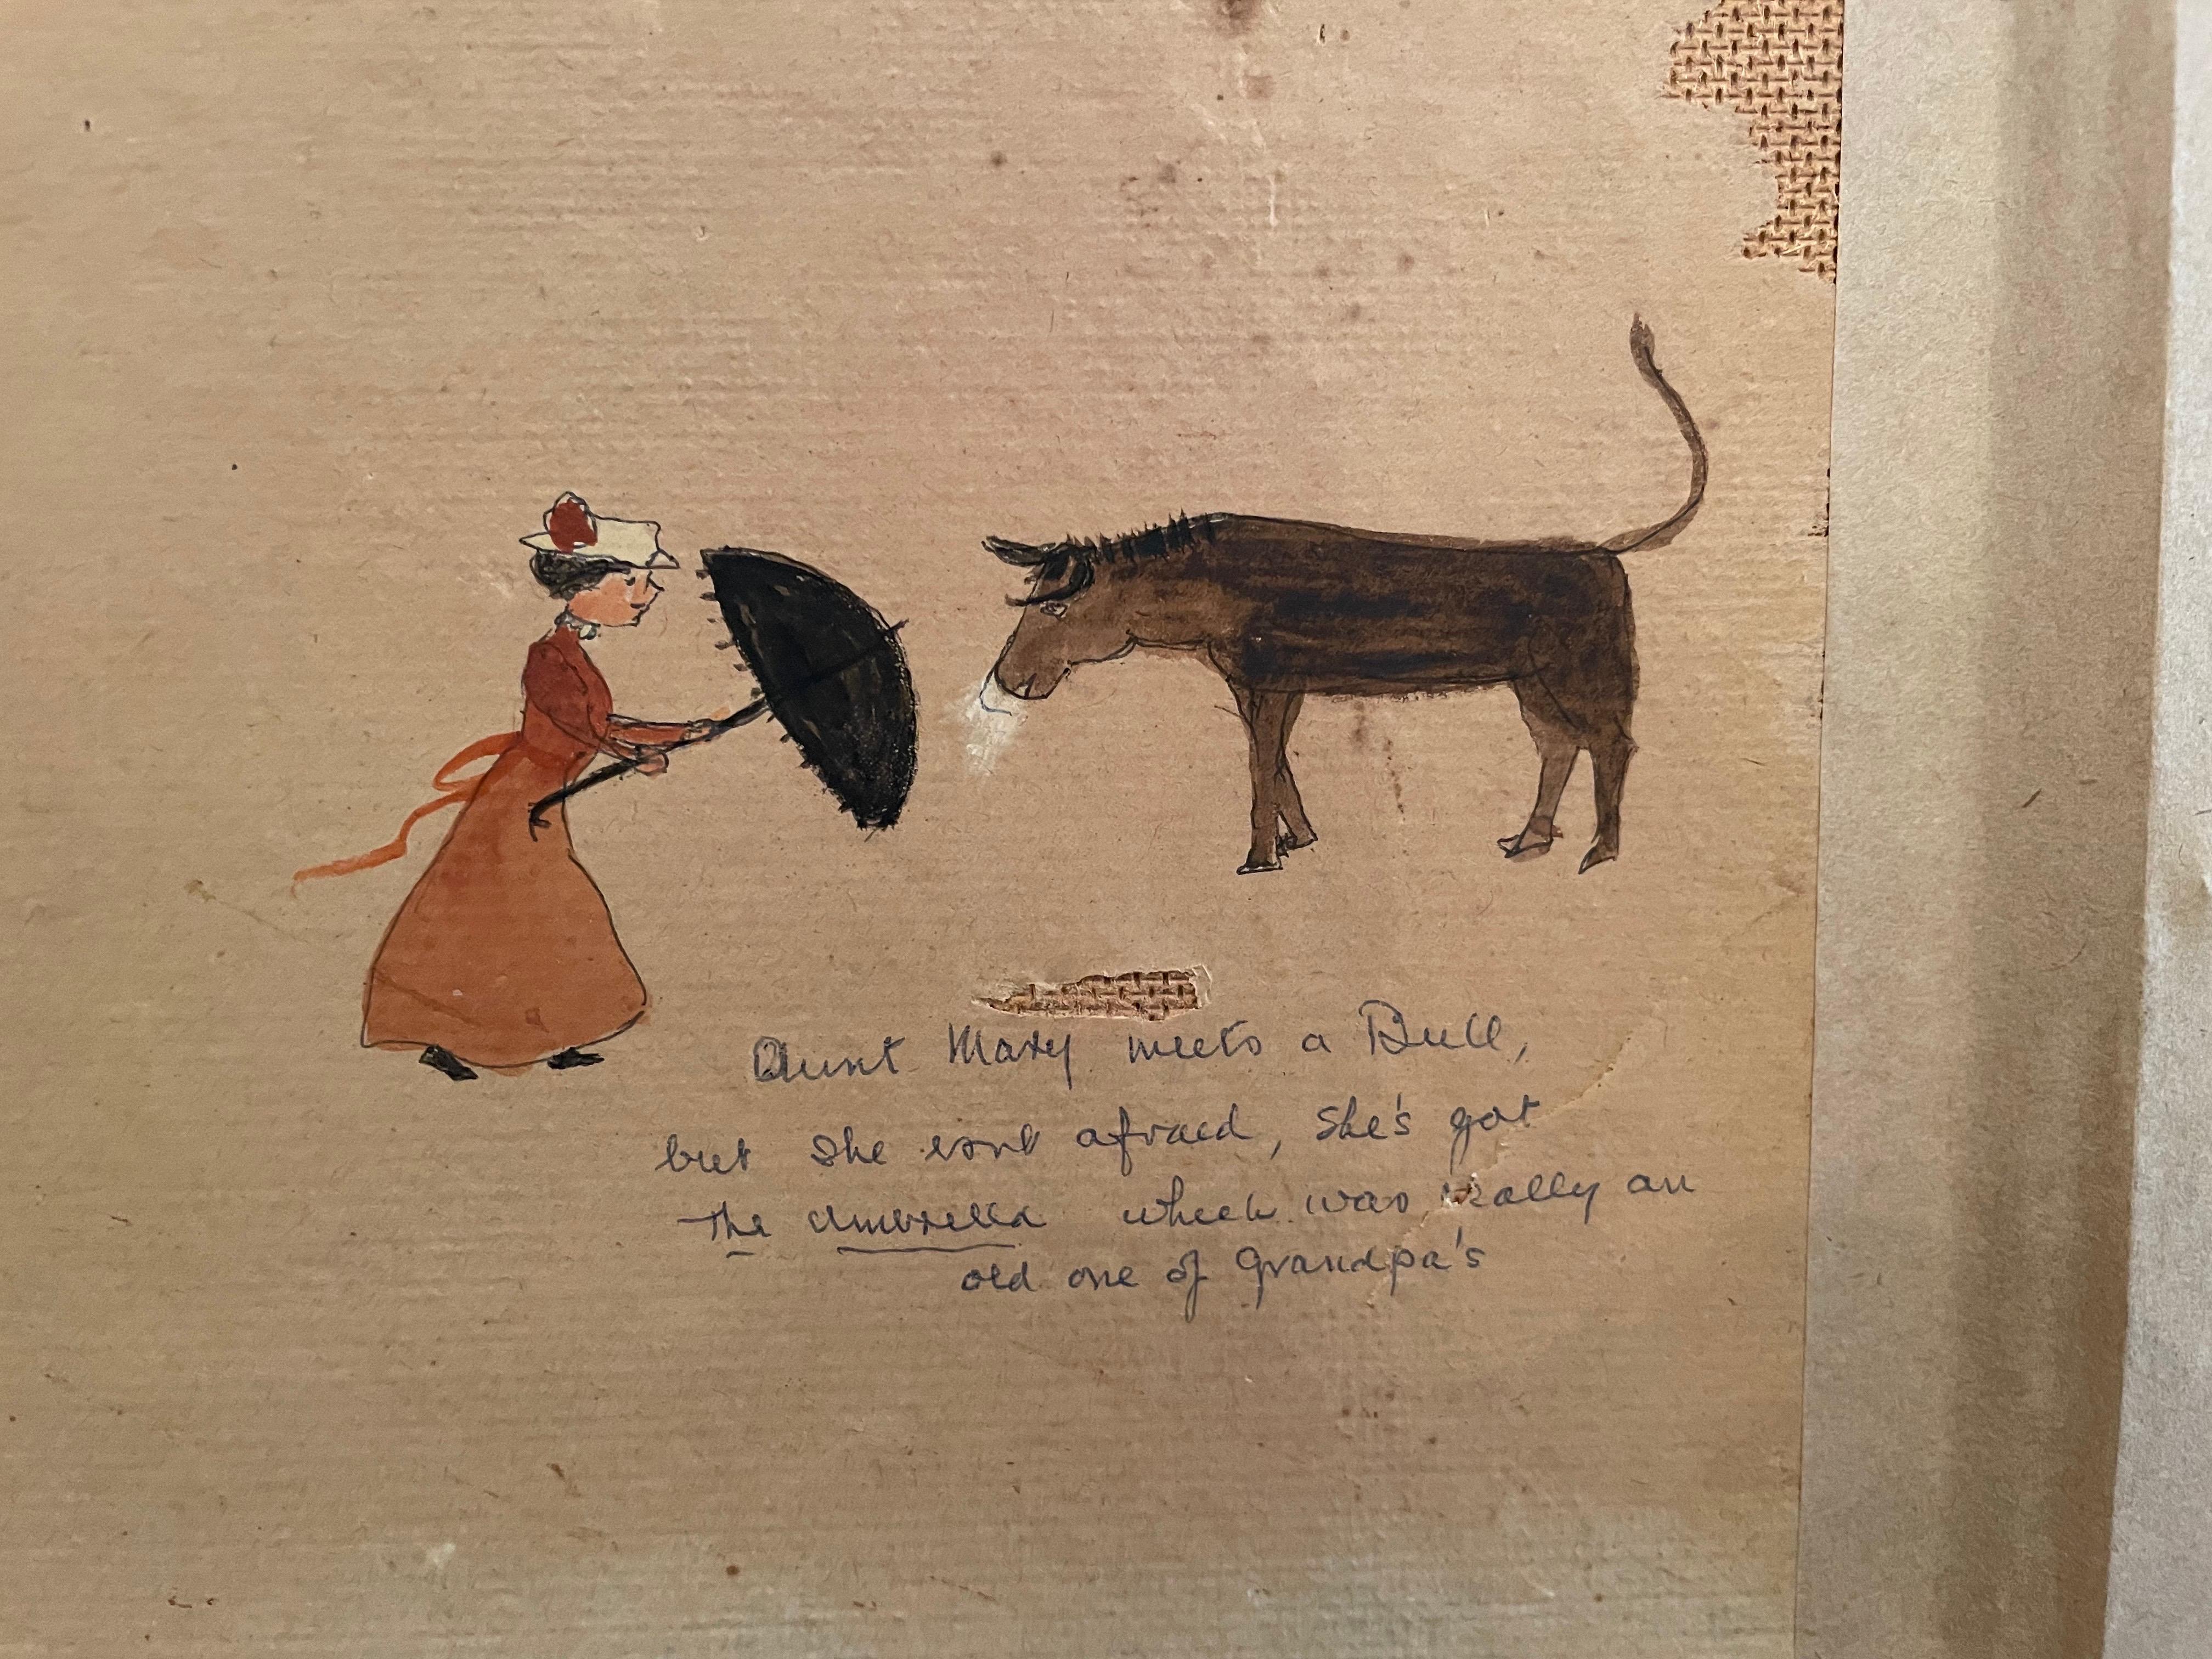 Aunt Mary meets a Bull,
but she isnt afraid, She's got
the umbrella which was really an
old one of Grandpa's